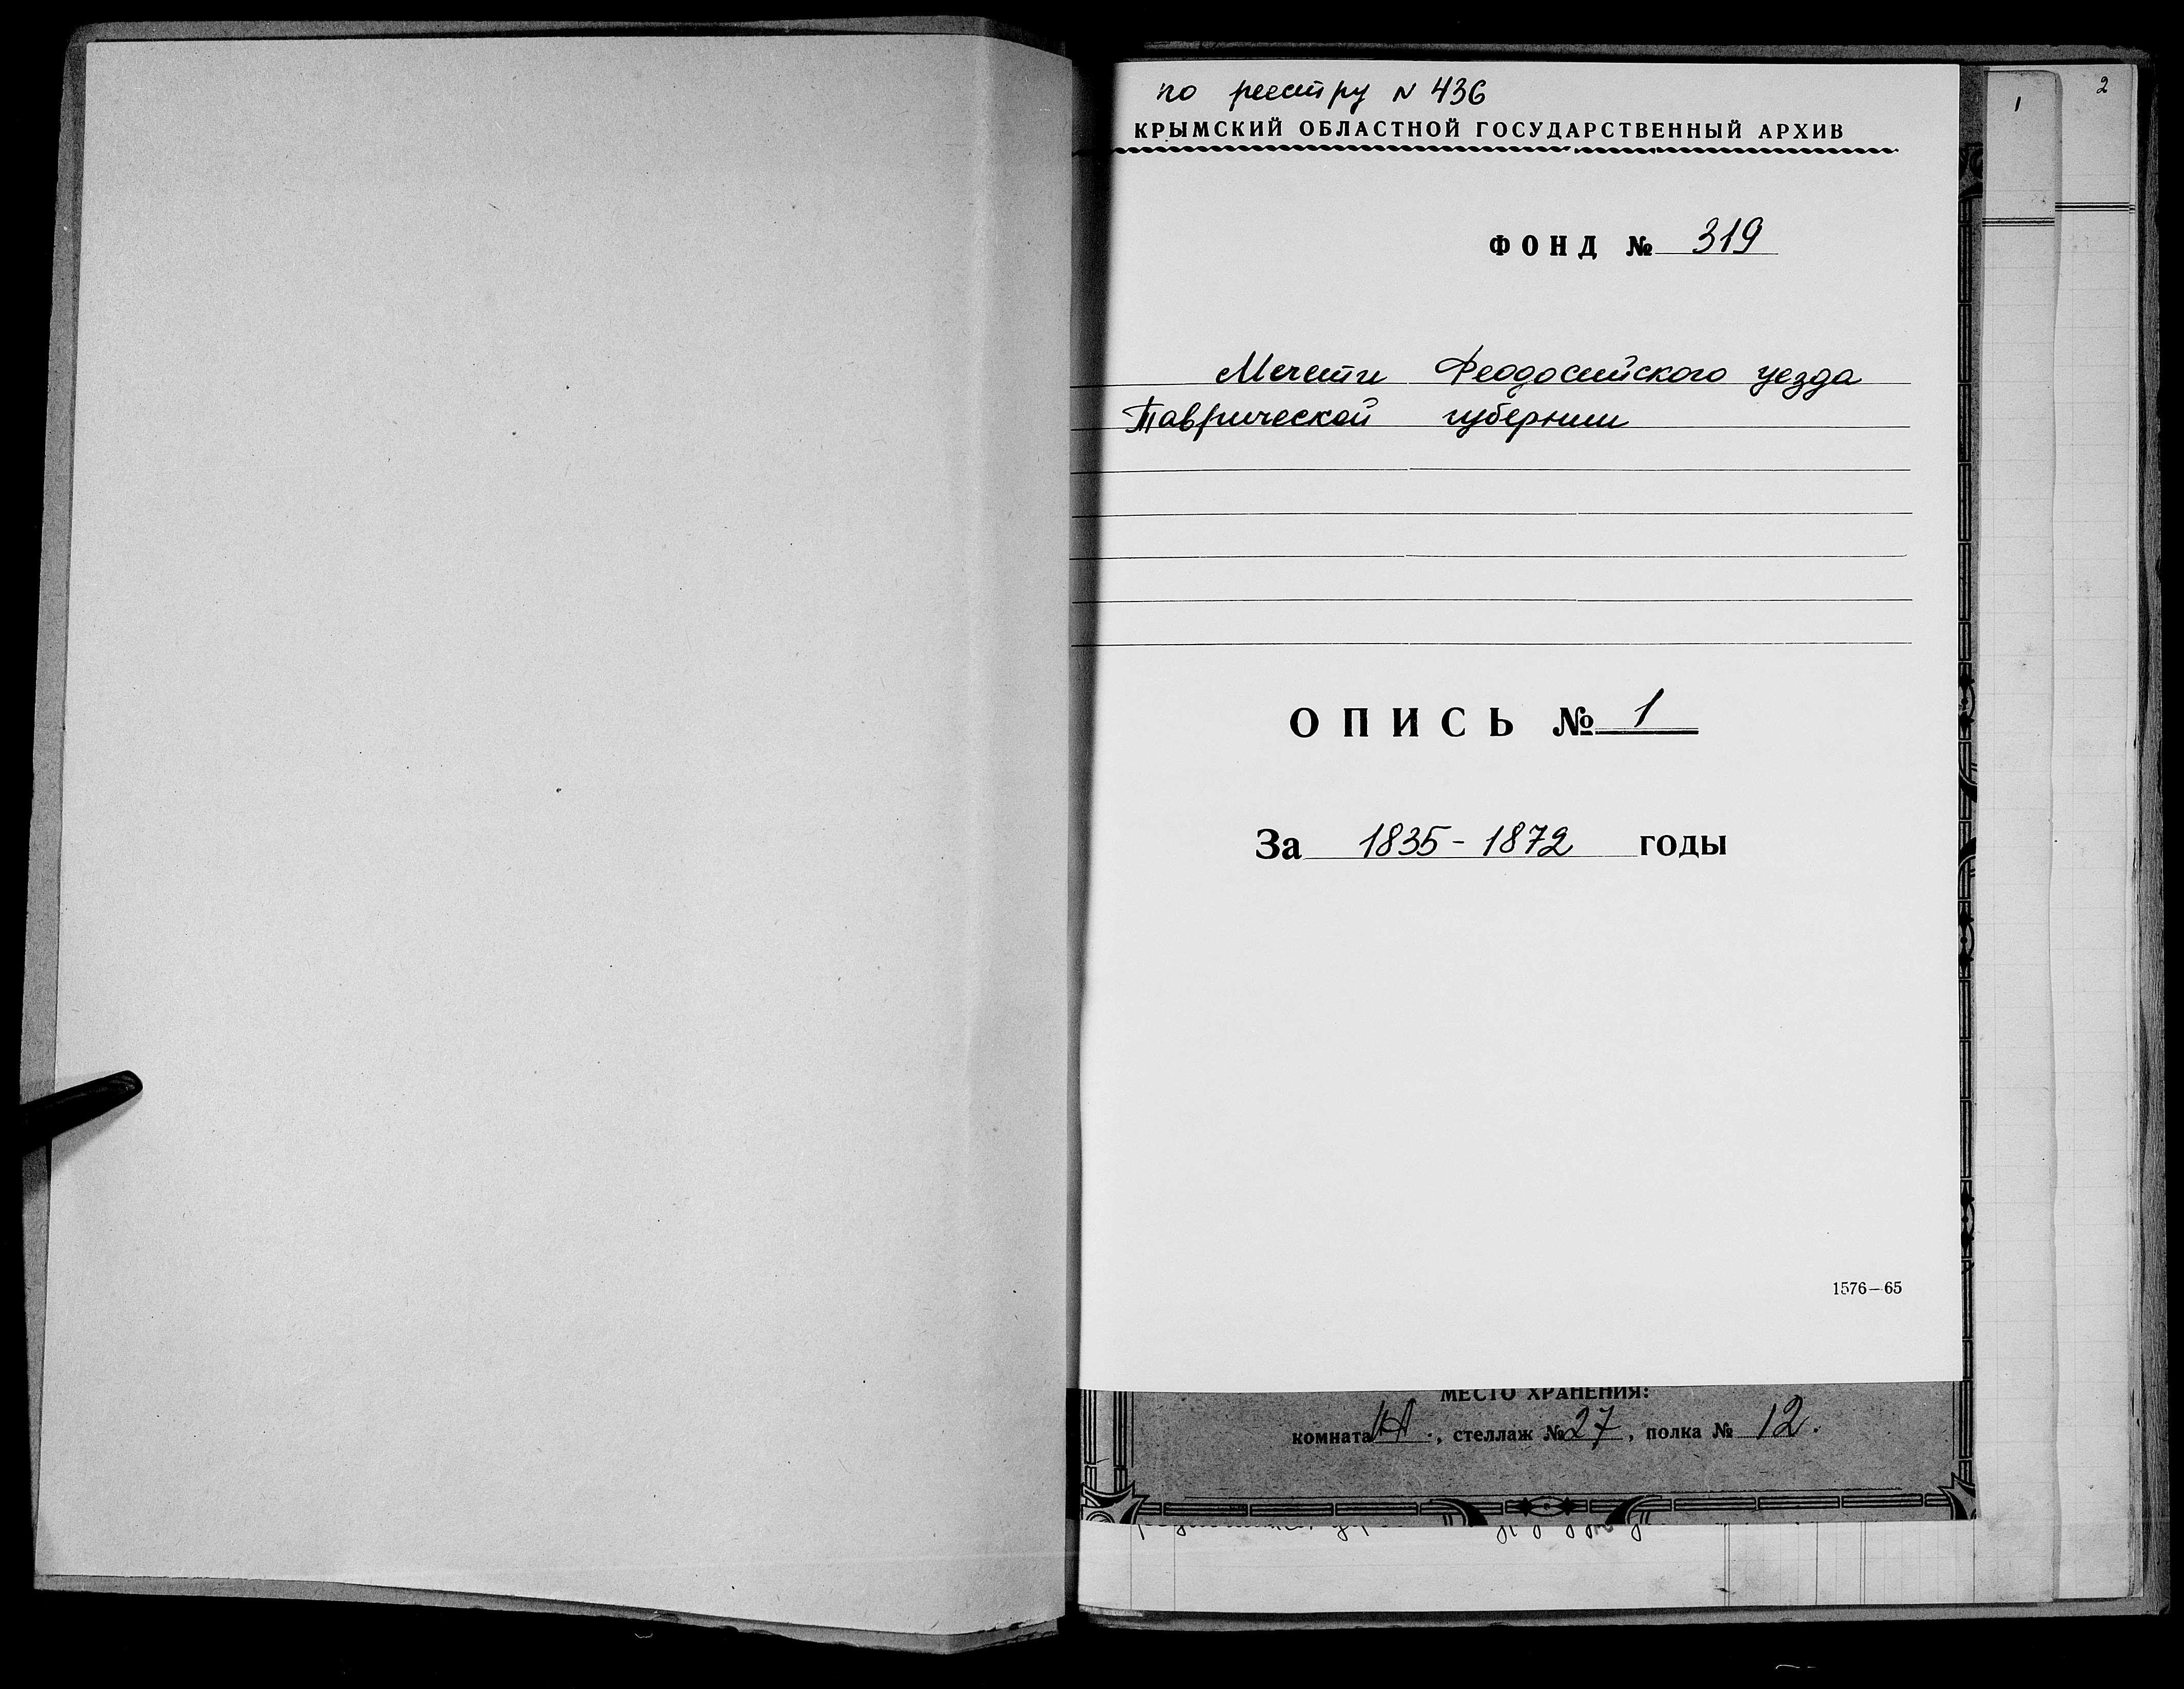 по реестру N 436
КРЫМСКИЙ ОБЛАСТНОЙ ГОСУДАРСТВЕННЫЙ АРХИВ
ФОНД № 319
Мечети Феодосийского уезда
Таврической губернии
ОПИСЬ № 1
За 1835 - 1872 годы
1576—65
МЕСТО ХРАНЕНИЯ:
комната, стеллаж № 27, полка № 12.
1
2